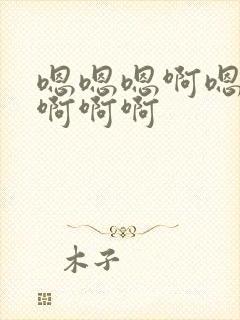 嗯嗯嗯啊嗯
啊啊啊
木子